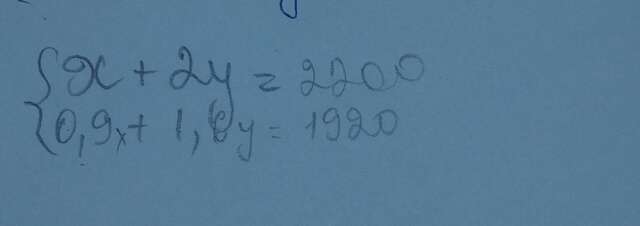 x + 2y = 2200
0,9x + 1,8y = 1920